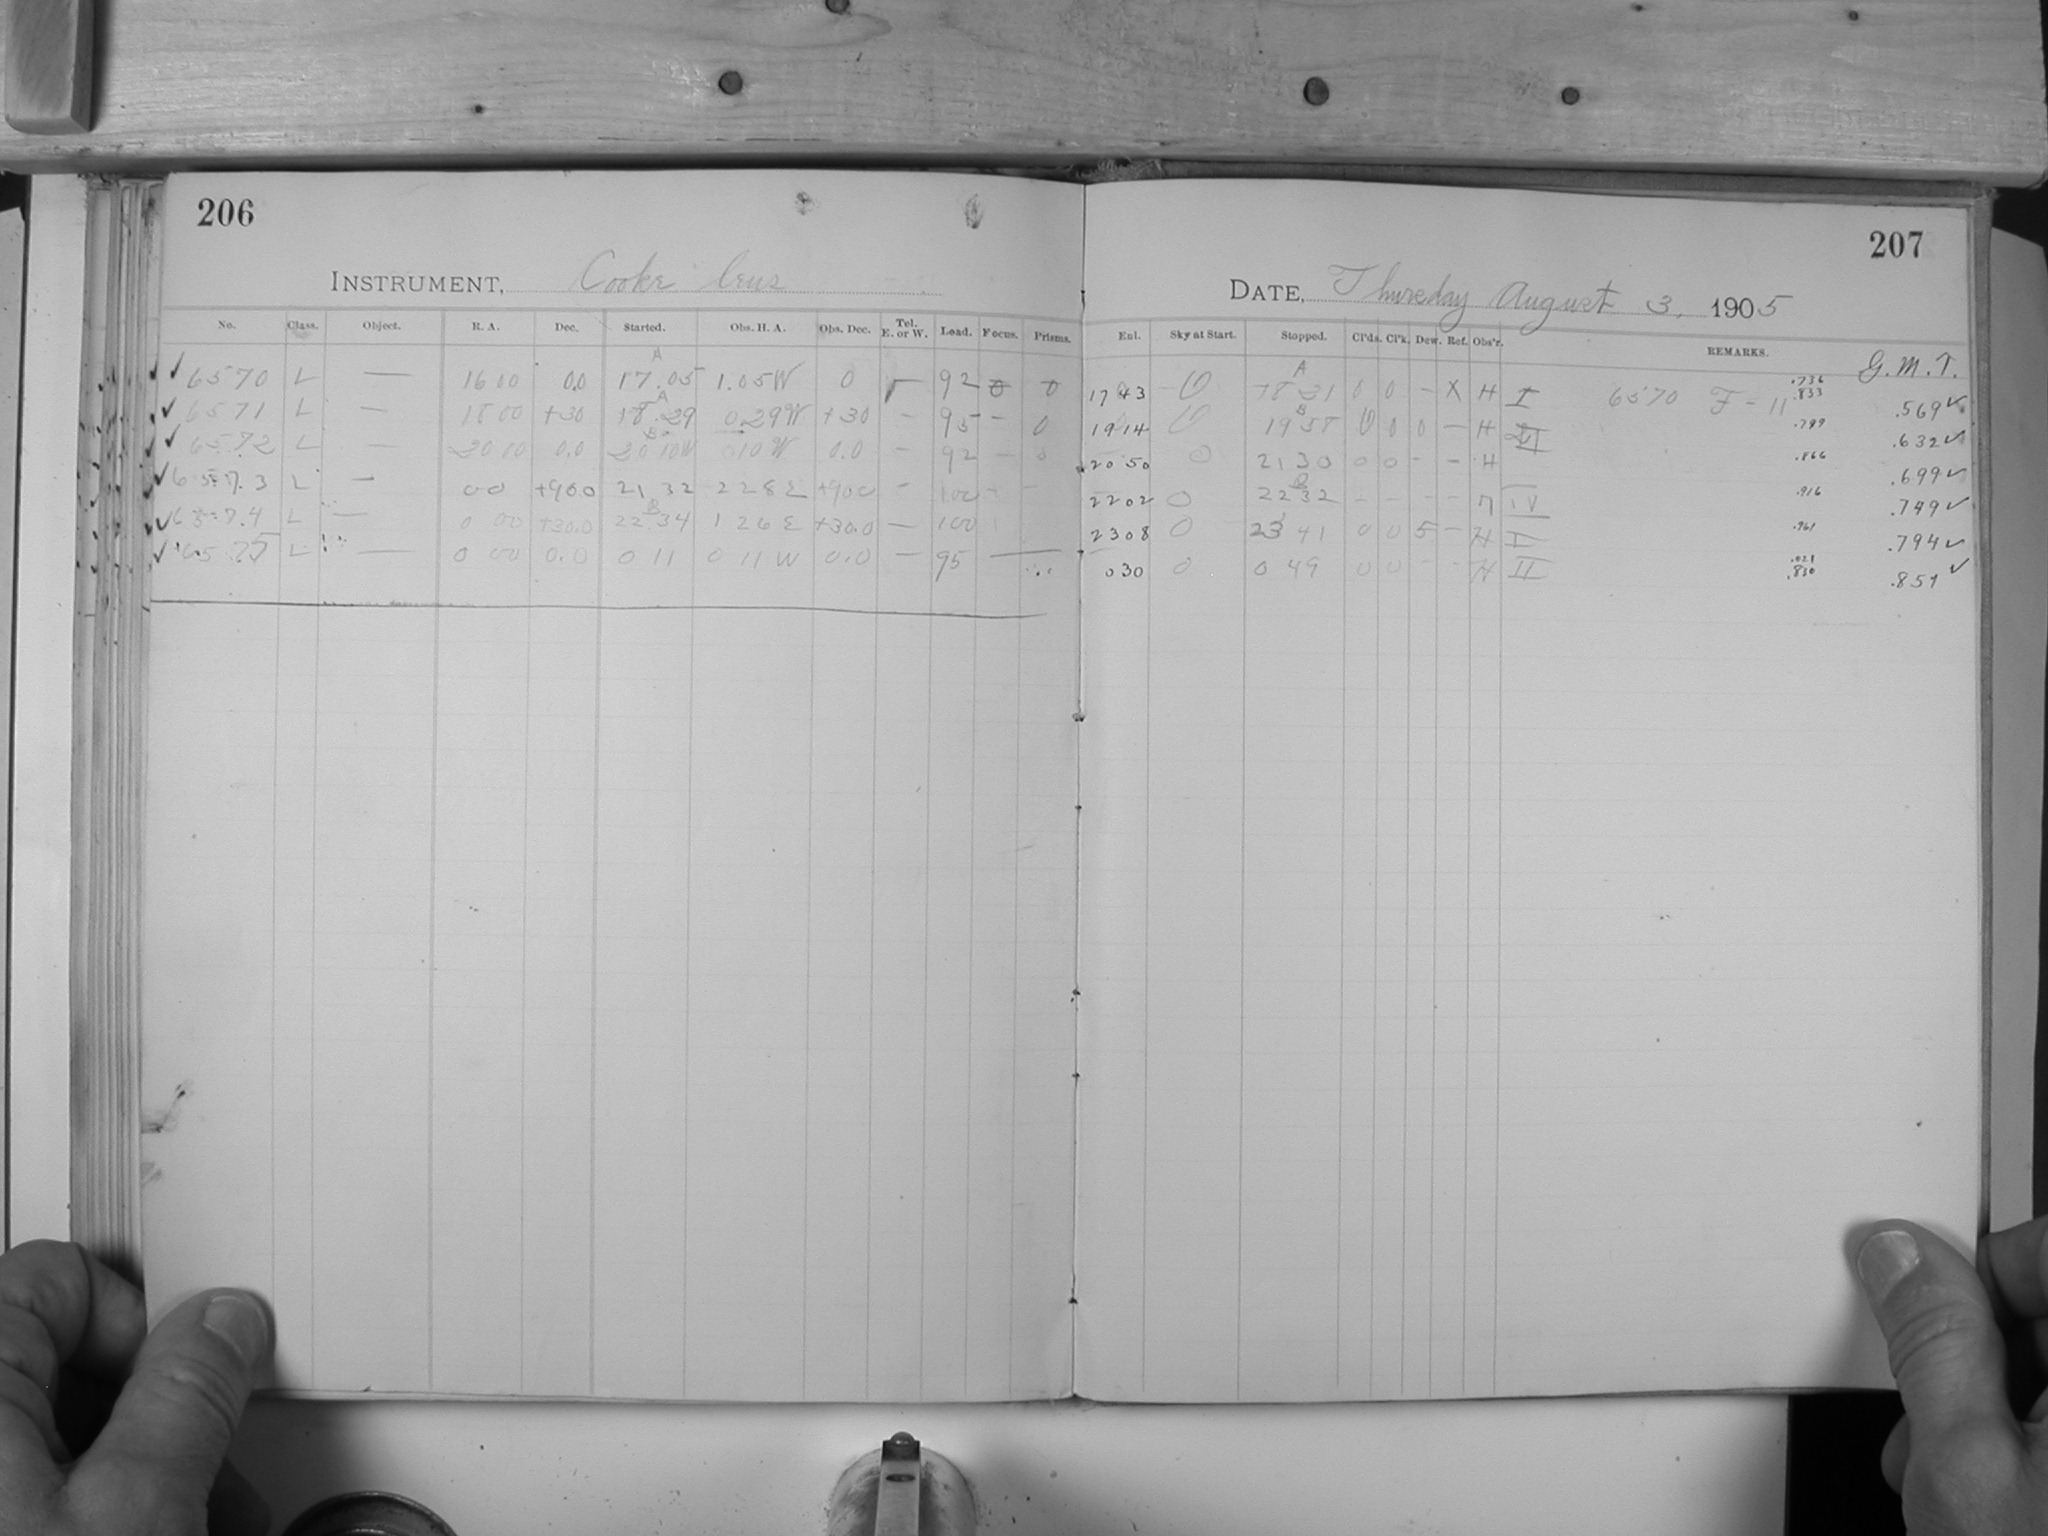 206
INSTRUMENT, Cooke lens
No. Class. Object. R. A. Dec. Started. Obs. H. A. Obs. Dec. Tel. E. or W. Load. Focus. Prisms.
A
✓ 6570 L — 16 00 0.0 17.05 1.05W 0 92 0 0
A
✓ 6571 L — 18 00 +30 18.29 0.29W +30 — 95 — 0
B
✓ 6572 L — 20 00 0.0 20 10 0 10W 0.0 — 92 — 0
✓ 6573 L — 0 0 +90.0 21 32 2 28 E +90.0 — 100 — —
B
✓ 6574 L — 0 00 +30.0 22.34 1 26 E +30.0 — 100
✓ 6575 L — 0 00 0.0 0 11 0 11 W 0.0 — 95 —
207
DATE, Thursday August 3, 1905
Enl. Sky at Start. Stopped. Cl'ds. Cl'k. Dew. Ref. Obs'r. REMARKS. G.M.T.
A
17 43 0 18 21 0 0 — X H I 6570 F = 11 .736 .833 .569 ✓
B
19 14 0 19 58 0 0 0 — H .799 .632 ✓
20 50 0 21 30 0 0 — — H .866 .699 ✓
B
22 02 0 22 32 — — — — H IV .916 .749 ✓
23 08 0 23 41 0 0 5 — H I .961 .794 ✓
0 30 0 0 49 0 0 — — H II .021 .830 .851 ✓